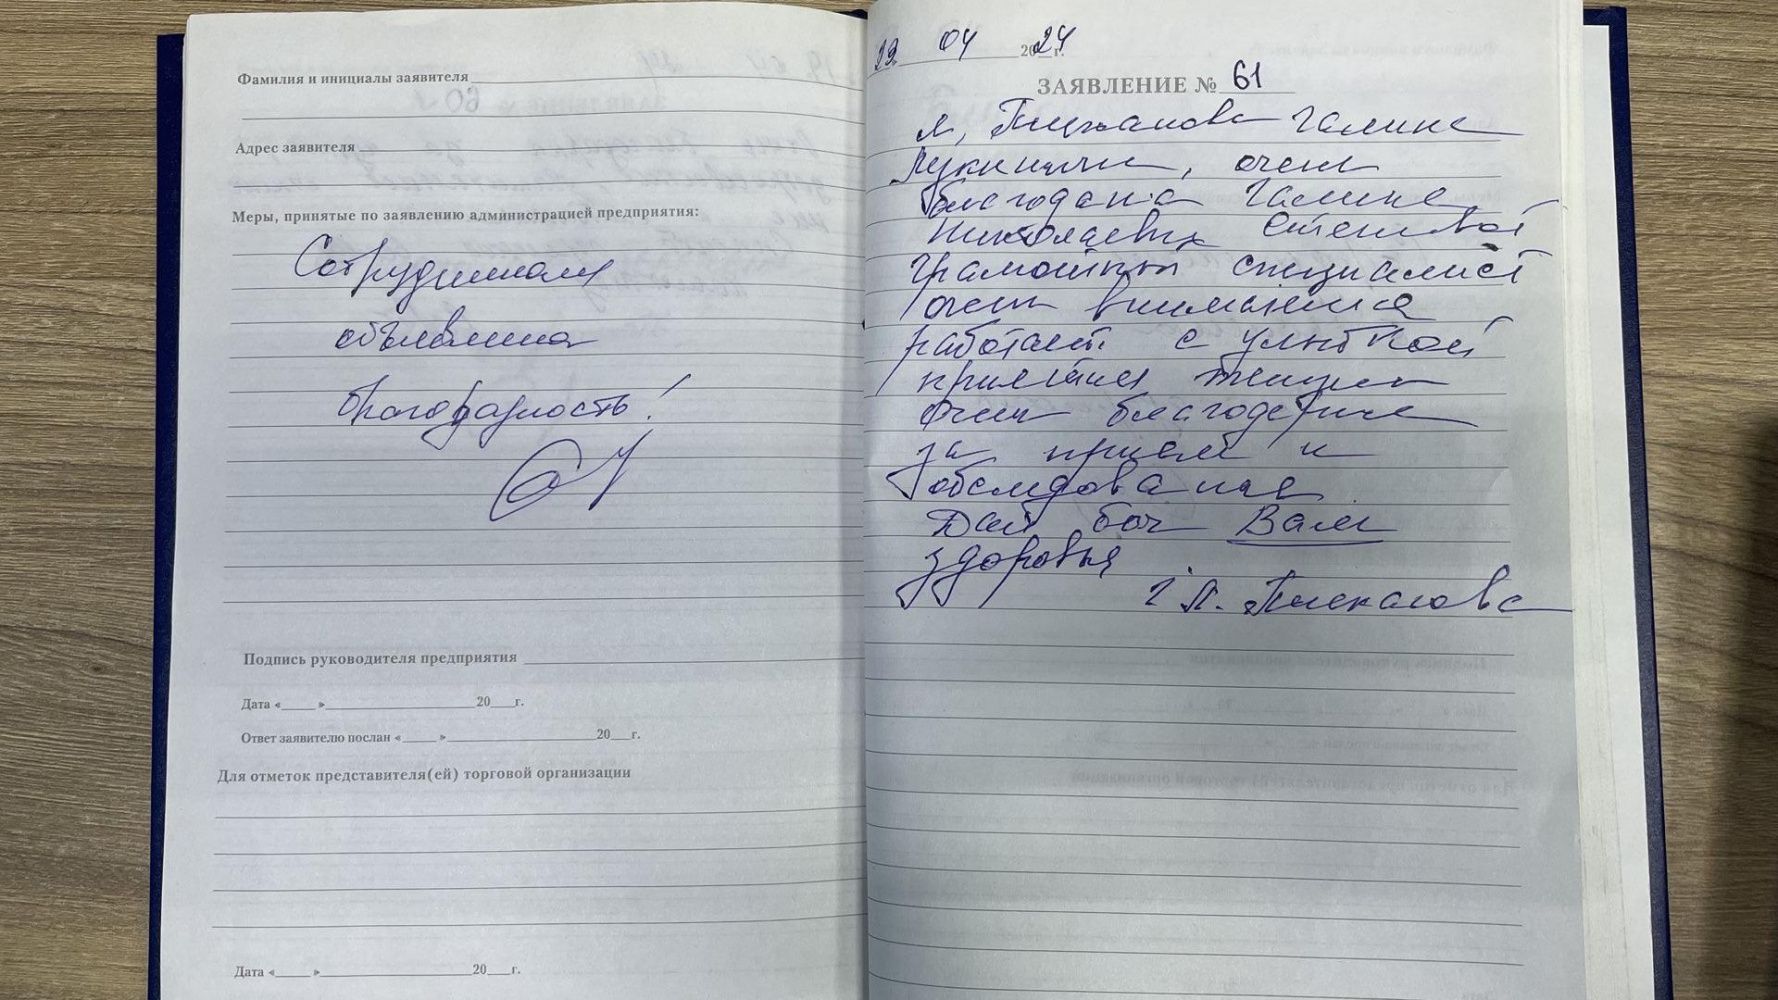 Фамилия и инициалы заявителя
Адрес заявителя
Меры, принятые по заявлению администрацией предприятия:
Сотрудникам
объявлена
благодарность!
Подпись руководителя предприятия
Дата « » 20 г.
Ответ заявителю послан « » 20 г.
Для отметок представителя(ей) торговой организации
Дата « » 20 г.
04 2024 г.
ЗАЯВЛЕНИЕ № 61
Я, Галина
, очень
благодарна Галине
Николаевне
грамотный специалист
очень внимательна
работает с улыбкой
приятная женщина
Очень благодарна
за прием и
обследование
Дай бог Вам
здоровья